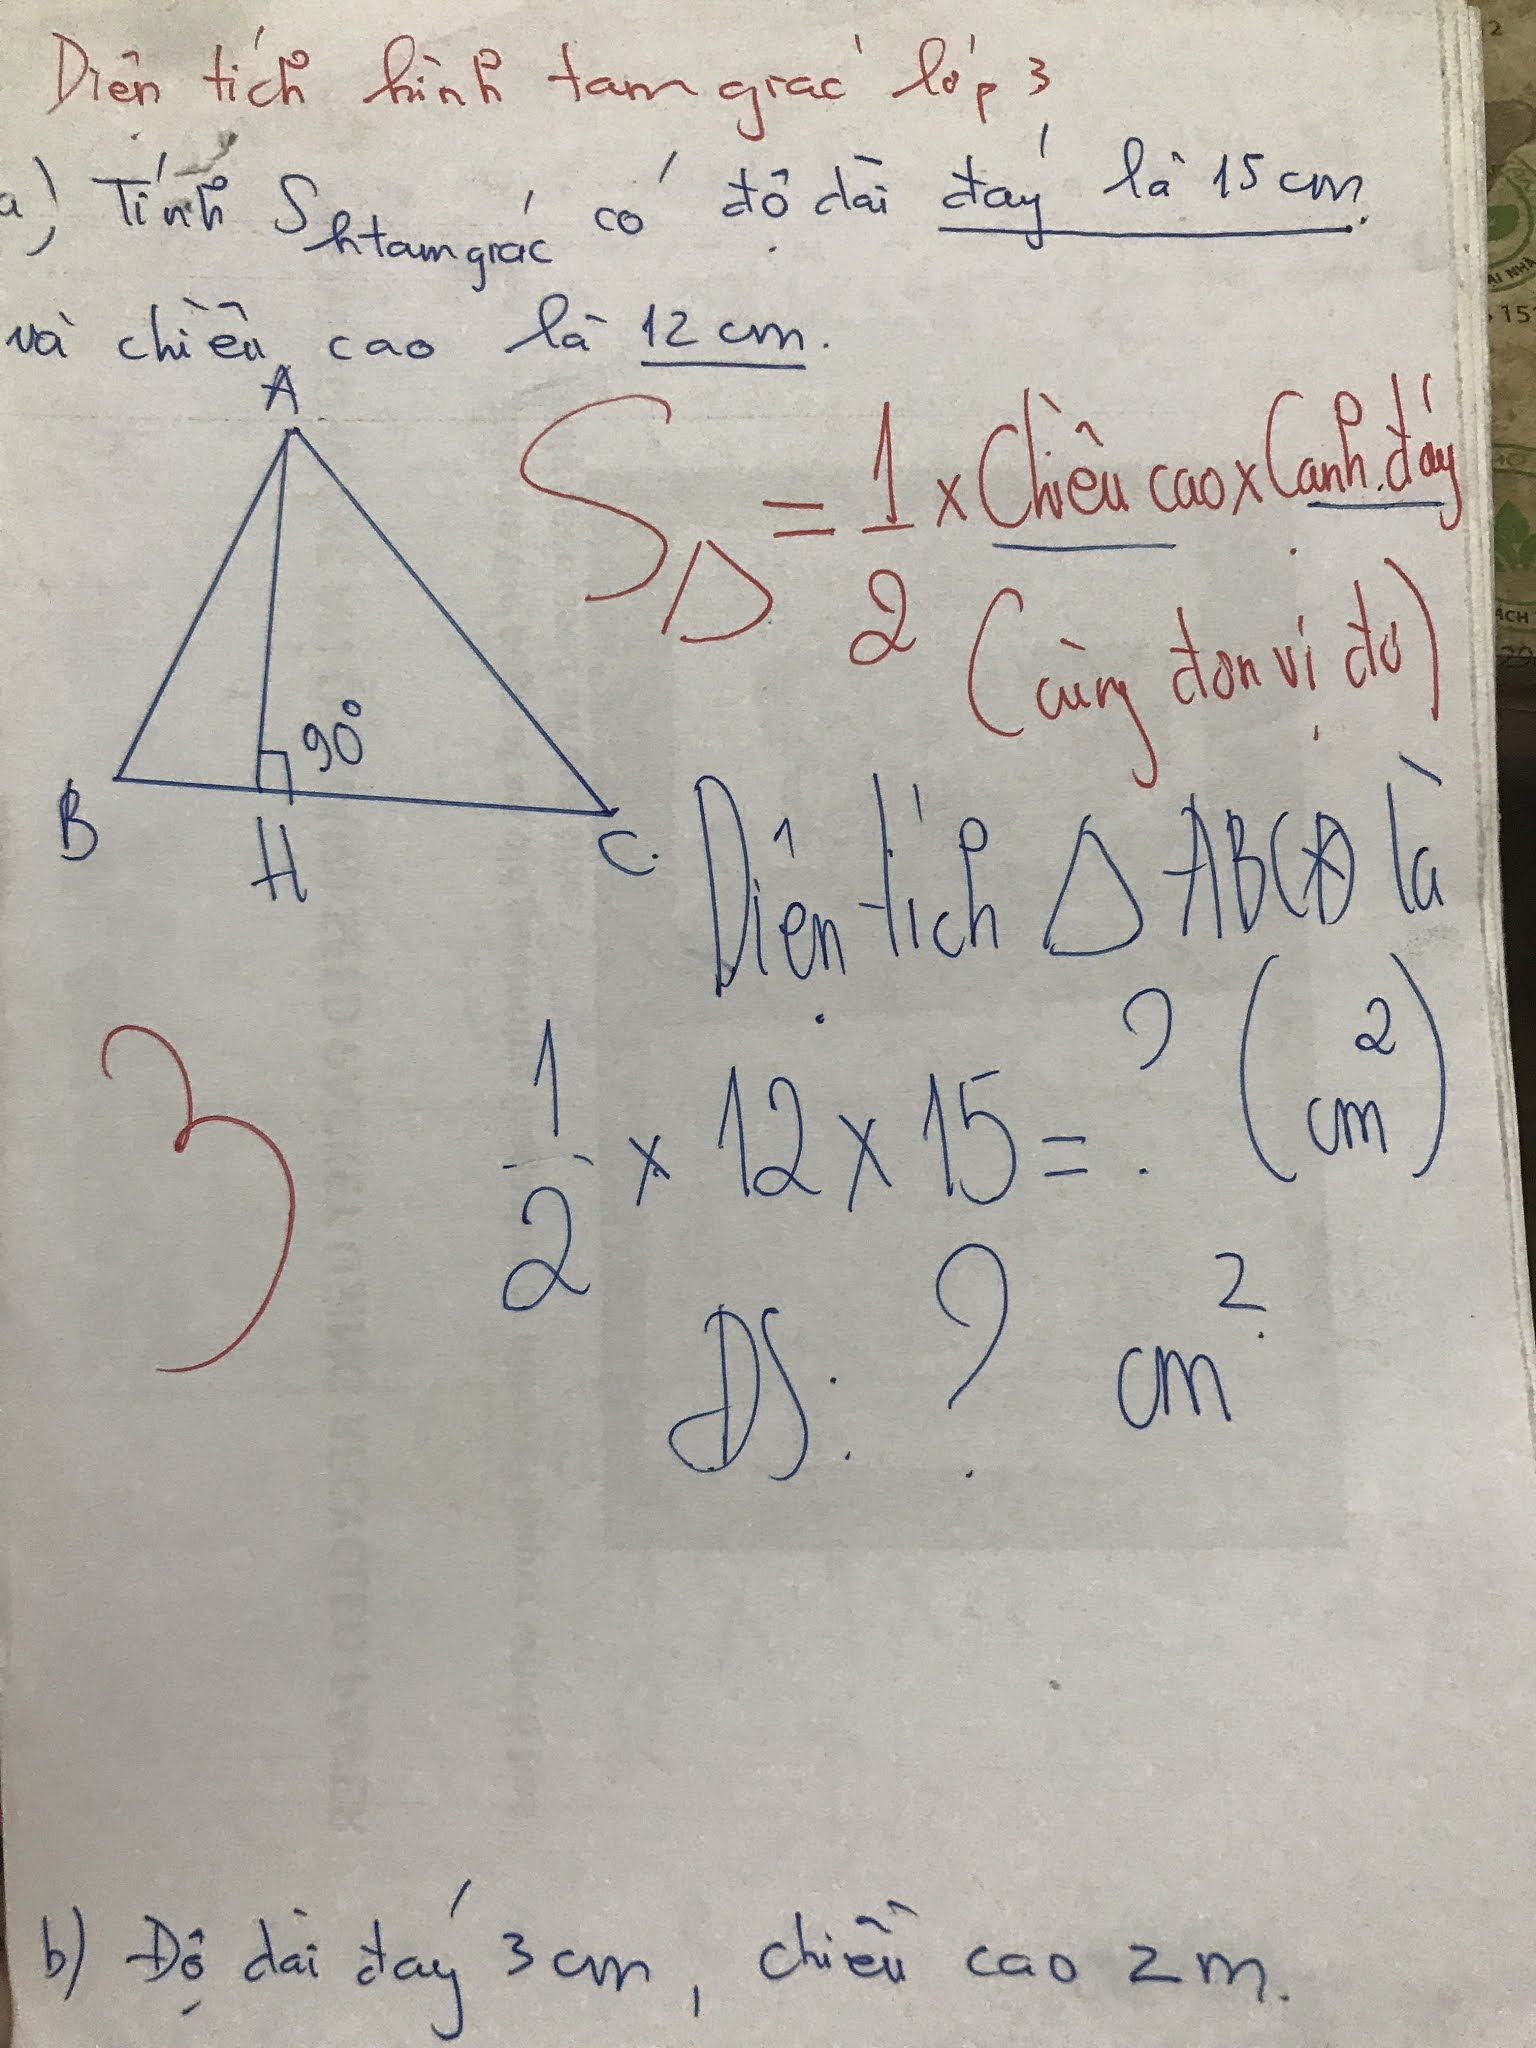 Diện tích hình tam giác lớp 3
a) Tính S h tam giác có độ dài đáy là 15 cm.
và chiều cao là 12 cm.
A
S△ = 1/2 x Chiều cao x Cạnh đáy
(cùng đơn vị đo)
90°
B
H
C
Diện tích △ ABC là
3
1/2 x 12 x 15 = ? (cm²)
ĐS: ? cm²
b) Độ dài đáy 3 cm, chiều cao 2 m.
2
151